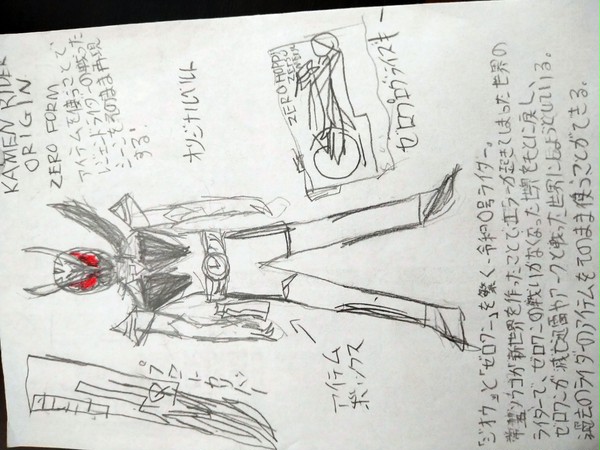 KAMEN RIDER
ORIGIN
ZERO FORM
アイテムを使うことで
レジェンドライダーの戦った
シーンをそのまま再現
する!
オリジナルベルト
ZERO HOPPER
ゼロプログライズキー
アイテム
ボックス
「ジオウ」と「ゼロワン」を繋ぐ、令和0号ライダー。
常磐ソウゴが新世界を作ったことでエラーが起きてしまった世界の
ライダーで、ゼロワンの戦いがなくなった世界をもとに戻し、
ゼロワンが滅亡迅雷やアークと戦った世界にしようとしている。
過去のライダーのアイテムをそのまま使うことができる。